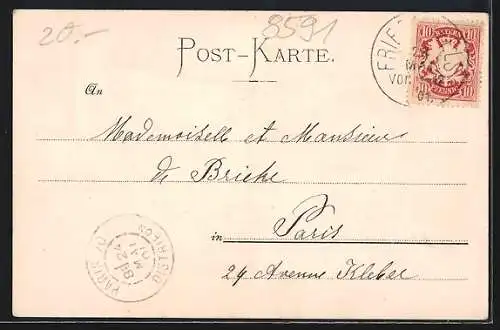 20.-
8591
POST-KARTE.
BAYERN
10 10
PFENNIG
10 10
FRIE
VOR
An
Mademoiselle et Monsieur
de Brieke
in Paris
24 Avenue Kleber
PARIS
DISTRIBUTION